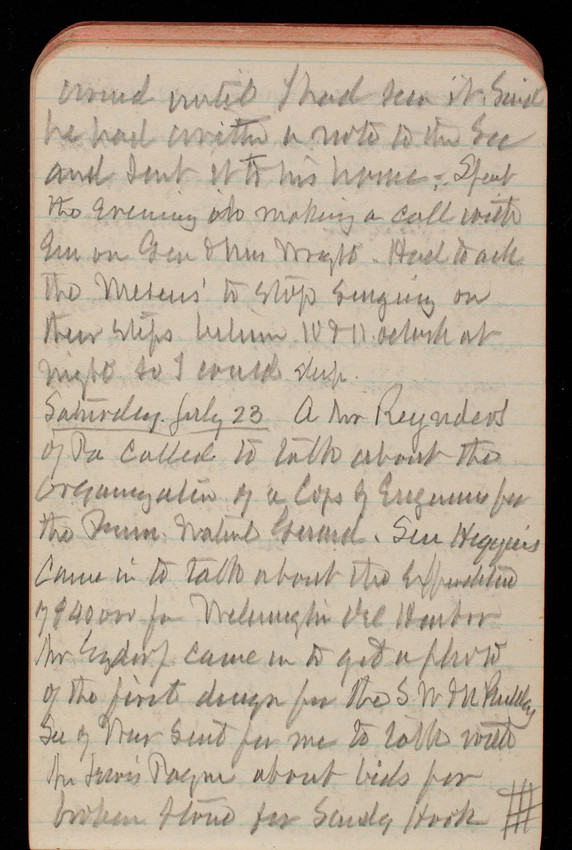 mind until I had seen it. Said
he had written a note to the Sec
and sent it to his home. Spent
the evening in making a call with
Em on Gen & Mrs Wright. Had to ask
the to stop singing on
their steps between 10 & 11 oclock at
night so I could sleep.
Saturday July 23 A Mr Reynders
of Pa called to talk about the
organization of a Cops of Engineers for
the Penn. Natnl Guard. Sen Higgins
came in to talk about the Expenditure
of $40000 for Wilmington Del Harbor
Mr came in to get a photo
of the first design for the S W & N Building
Sec of War sent for me to talk with
Mr Lewis Payne about bids for
broken stone for Sandy Hook